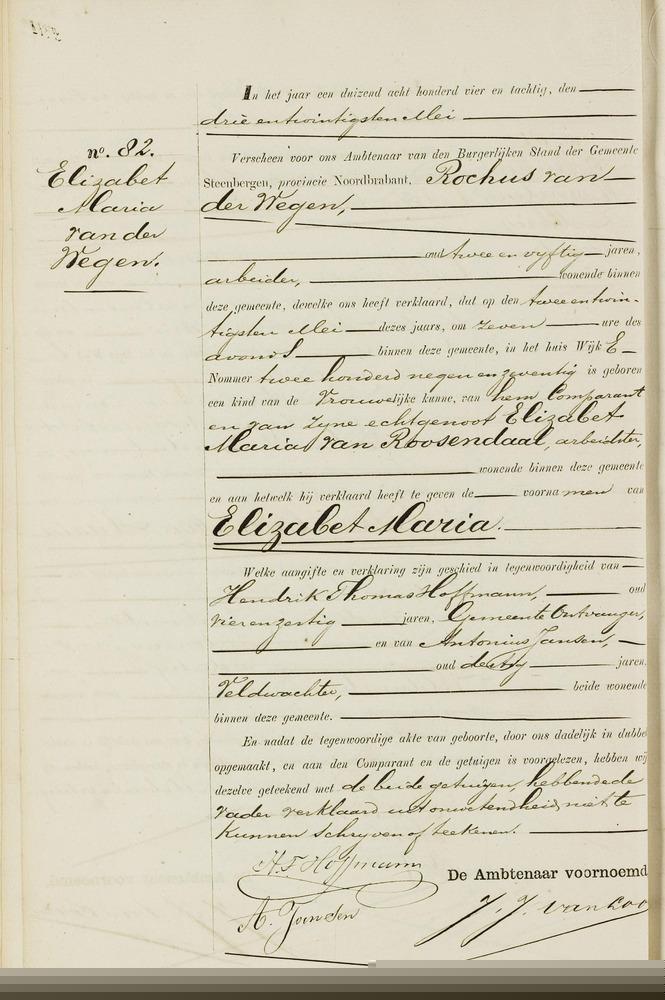 nº. 82.
Elizabet
Maria
van der
Wegen.
In het jaar een duizend acht honderd vier en tachtig, den
drie en twintigsten Mei
Verscheen voor ons Ambtenaar van den Burgerlijken Stand der Gemeente
Steenbergen, provincie Noordbrabant, Rochus van
der Wegen,
oud twee en vyftig jaren,
arbeider, wonende binnen
deze gemeente, dewelke ons heeft verklaard, dat op den twee en twin-
tigsten Mei dezes jaars, om zeven ure des
avonds binnen deze gemeente, in het huis Wijk E
Nommer twee honderd negen en zeventig is geboren
een kind van de Vrouwelijke kunne, van hem Comparant
en van zyne echtgenoot Elizabet
Maria van Roosendaal, arbeidster,
wonende binnen deze gemeente
en aan hetwelk hij verklaard heeft te geven de voornamen van
Elizabet Maria.
Welke aangifte en verklaring zijn geschied in tegenwoordigheid van
Hendrik Thomas Hoffmann, oud
vier en zestig jaren, Gemeente Ontvanger,
en van Antonius Jansen,
oud dertig jaren,
Veldwachter, beide wonende
binnen deze gemeente.
En nadat de tegenwoordige akte van geboorte, door ons dadelijk in dubbel
opgemaakt, en aan den Comparant en de getuigen is voorgelezen, hebben wij
dezelve geteekend met de beide getuigen, hebbende de
vader verklaard uit onwetendheid niet te
kunnen schryven of teekenen.
H. T. Hoffmann
De Ambtenaar voornoemd
A. Jansen